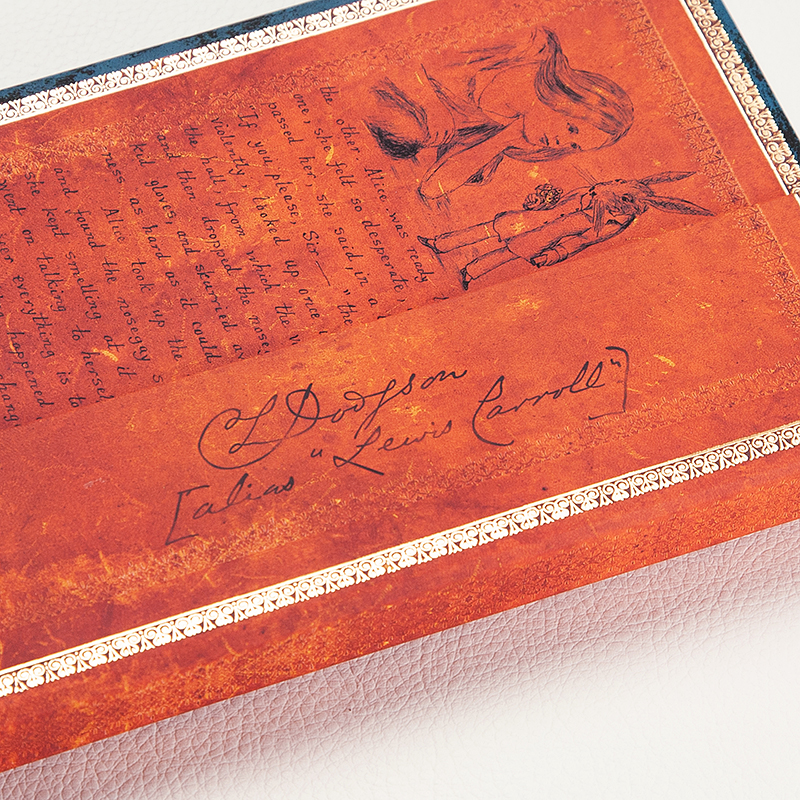 the other. Alice was ready
one, she felt so desperate,
passed her, she said, in a
"If you please, Sir — " the
violently, looked up once i
the hall, from which the v
and then dropped the noseg
kid gloves, and skurried aw
ness, as hard as it could
Alice took up the
and found the nosegay s
she kept smelling at it
went on talking to hersel
queer everything is to
happened
chang
CL Dodgson
[alias "Lewis Carroll"]